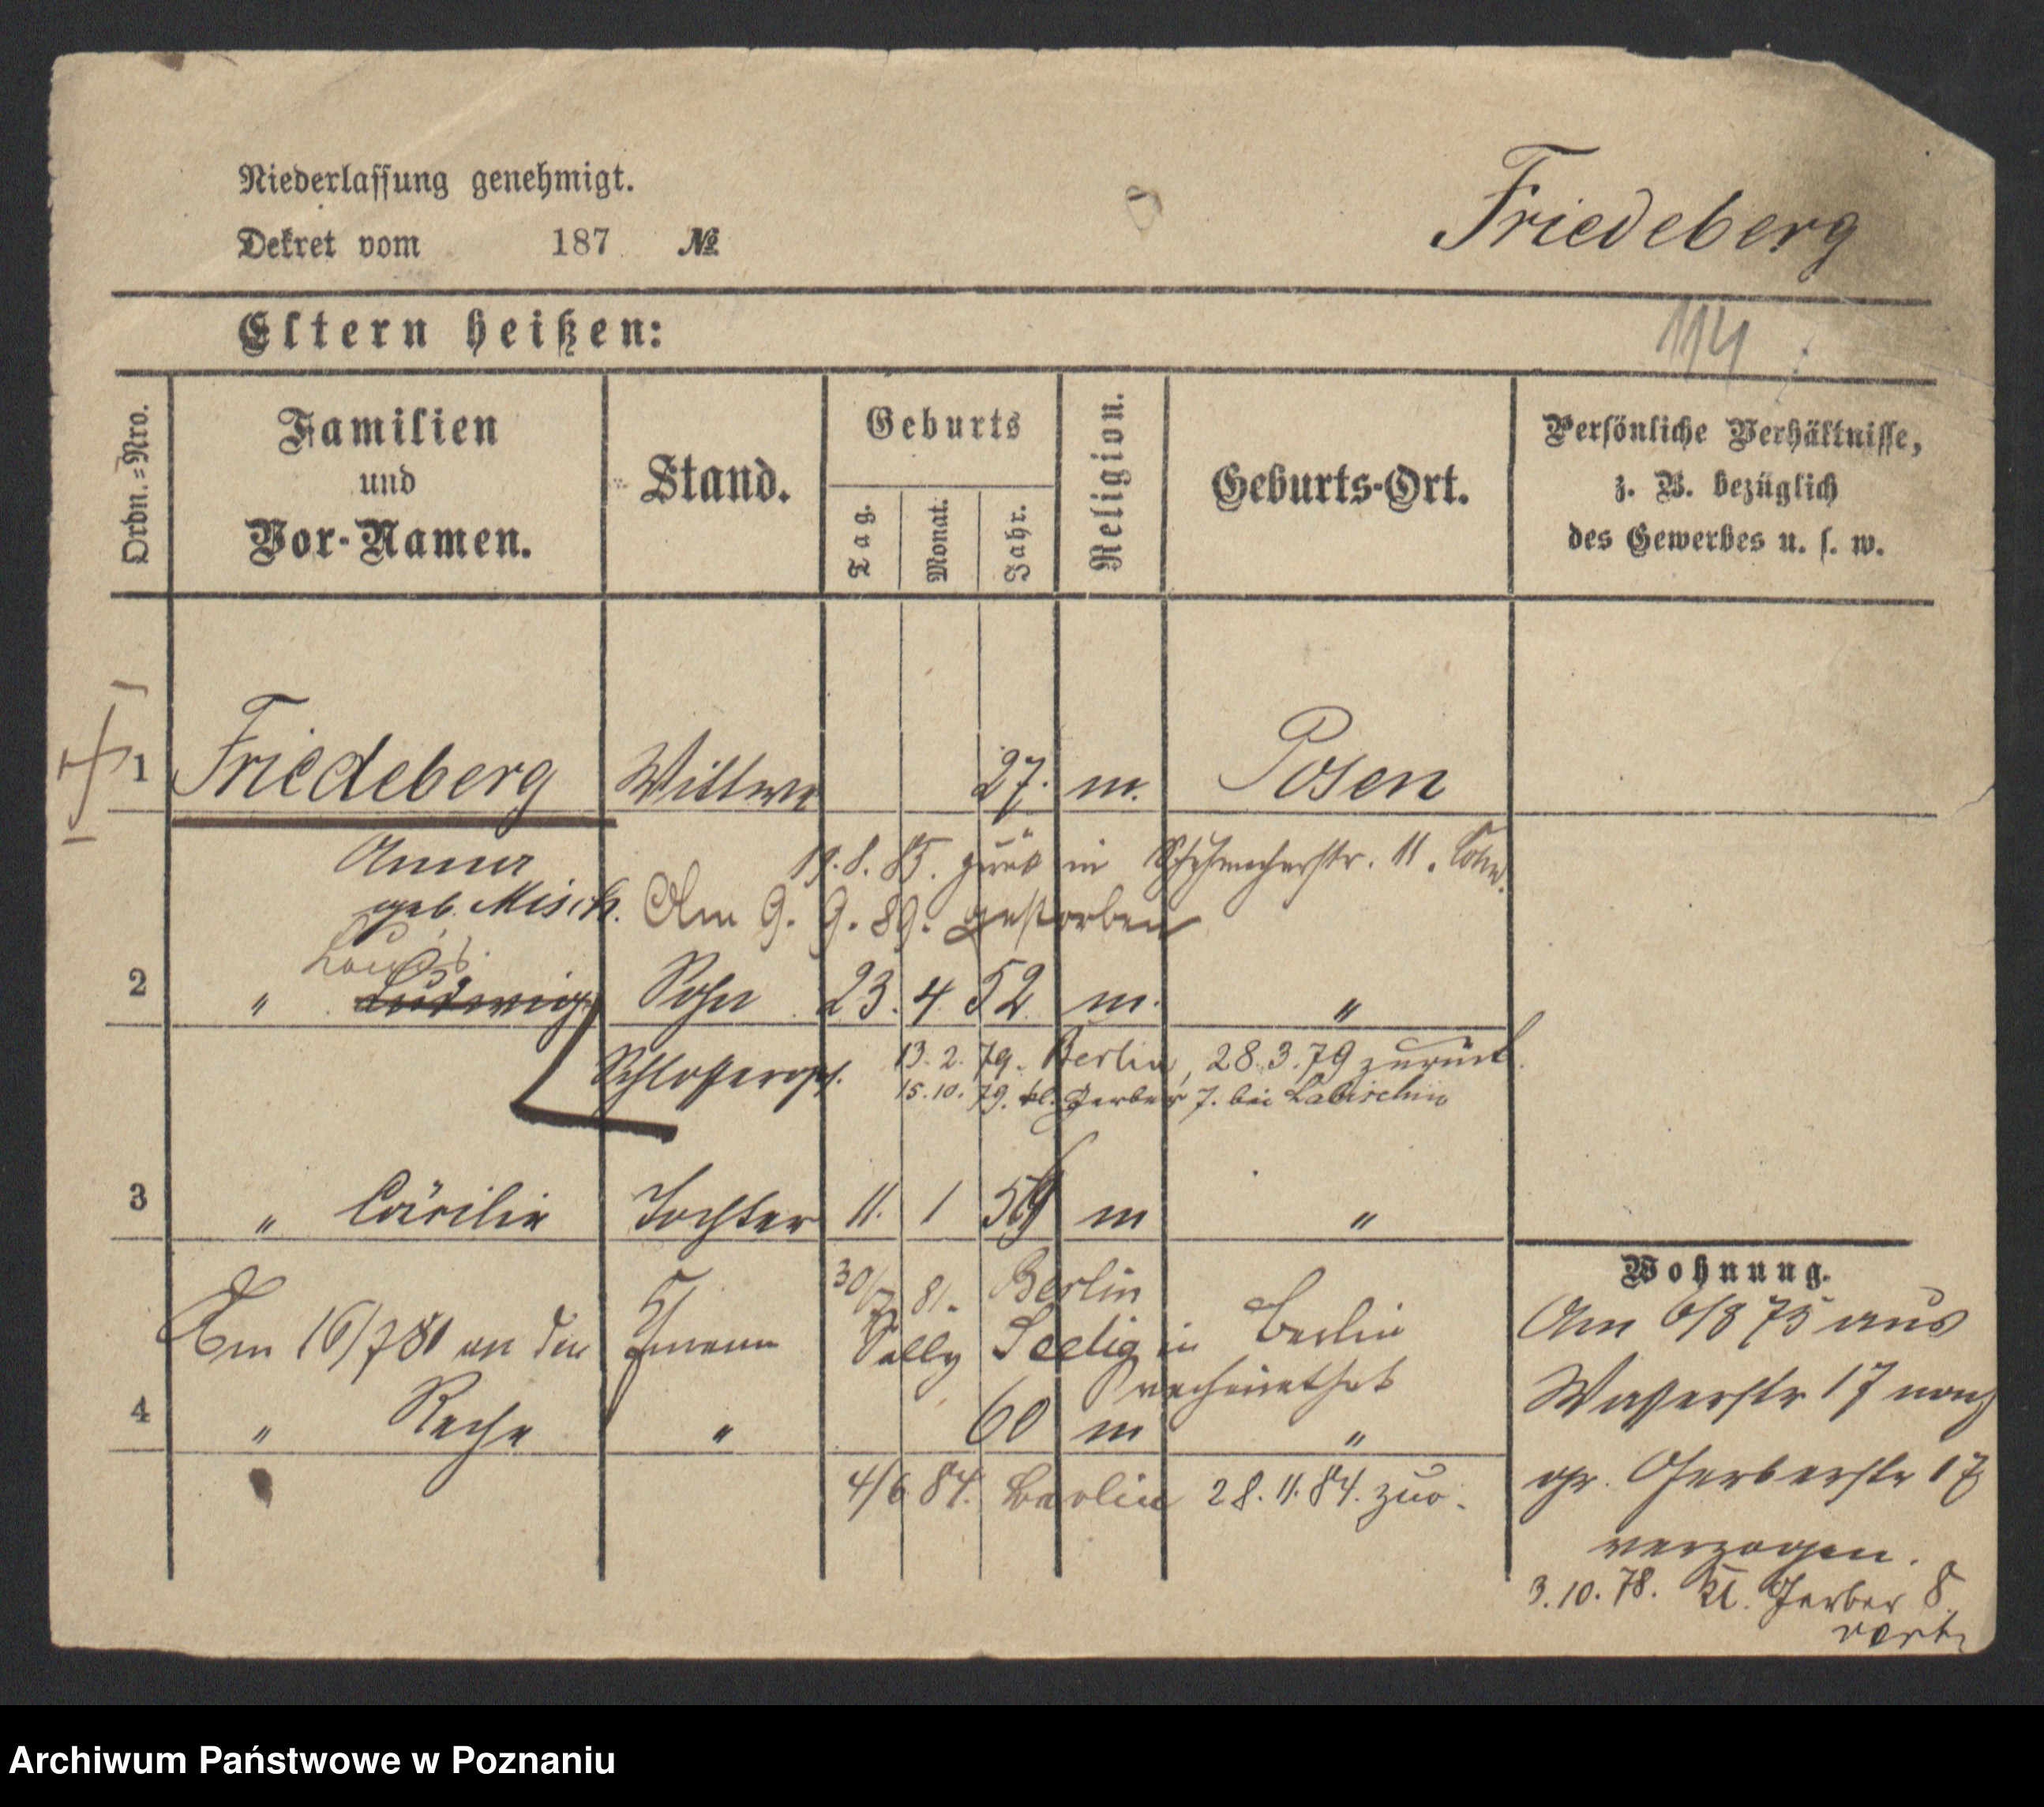 Niederlassung genehmigt.
Dekret vom 187 №
Friedeberg
114
Eltern heißen:
Ordn.=Nro.
Familien
und
Vor-Namen.
Stand.
Geburts
Tag.
Monat.
Jahr.
Religion.
Geburts-Ort.
Persönliche Verhältnisse,
z. B. bezüglich
des Gewerbes u. s. w.
1 Friedeberg Wittwe 27. m. Posen
Anna
geb. Misch.
19.8.85. zurück in Schuhmacherstr. 11.
Am 9. 9. 89. gestorben
Louis
2 " Ludwig Sohn 23. 4. 52 m. "
Schlosserges. 13.2.79. Berlin, 28.3.79 zurück.
15.10.79. kl. Gerber 7. bei Labischin
3 " Cäcilie Tochter 11. 1 59 m "
30/7 81. Berlin
Am 16/7 81 an den Ehmann Sally Seelig in Berlin
verheirathet
4 " Rache " 60 m "
4/6 84. Berlin 28.11.84. zur.
Wohnung.
Am 6/3 75 aus
Wasserstr 17 nach
gr. Gerberstr 17
verzogen.
3.10.78. Kl. Gerber 8.